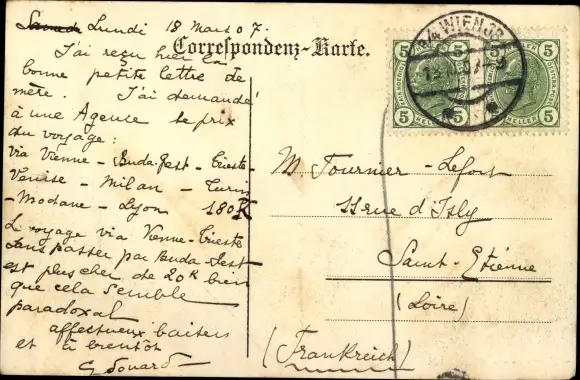 Lundi 18 Mars 07.
Correspondenz-Karte.
J'ai reçu hier la
bonne petite lettre de
mère. J'ai demandé
à une Agence le prix
du voyage :
via Vienne - Buda-Pest - Trieste -
Venise - Milan - Turin
- Modane - Lyon 180 K
Le voyage via Vienne-Trieste
sans passer par Buda Pest
est plus cher de 20 K bien
que cela semble
paradoxal
affectueux baisers
et à bientôt
Edouard
M Fournier-Lefort
11 rue d'Isly
Saint-Etienne
(Loire)
(Frankreich)
WIEN
5 5 5 5
HELLER HELLER